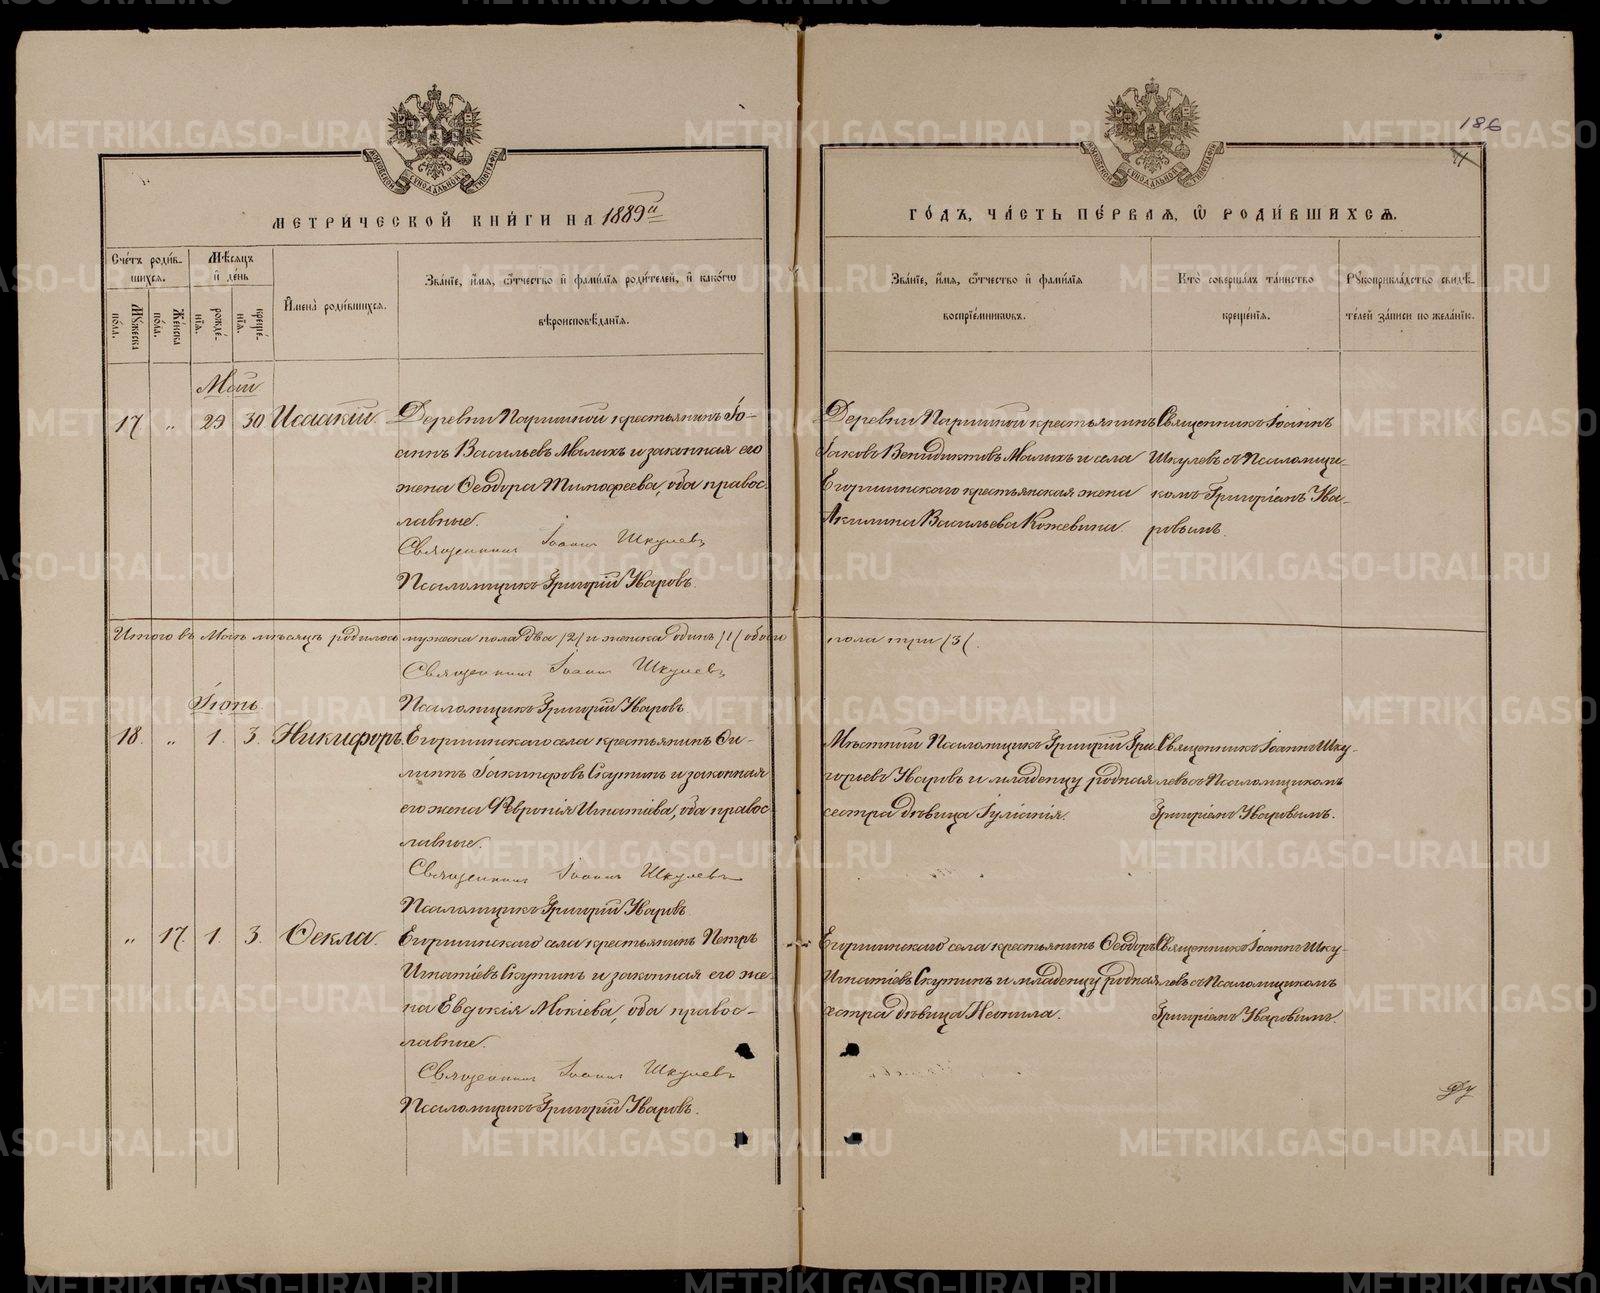 186
МЕТРИЧЕСКОЙ КНИГИ НА 1889й
ГОДЪ, ЧАСТЬ ПЕРВАЯ, Ѿ РОДИВШИХСЯ.
Счетъ родившихся.
Мужеска пола.
Женска пола.
Мѣсяцъ и день
рожденія.
крещенія.
Имена родившихся.
Званіе, имя, отчество и фамилія родителей, и какогѡ
вѣроисповѣданія.
Званіе, имя, отчество и фамилія
воспріемниковъ.
Кто совершалъ таинство
крещенія.
Рукоприкладство свидѣ-
телей записи по желанію.
Май
17 „ 29 30 Исаакій
Деревни Паршиной крестьянинъ Іо-
аннъ Васильевъ Малыхъ и законная его
жена Ѳеодора Тимофеева, оба правос-
лавные.
Священникъ Іоаннъ Шкулевъ
Псаломщикъ Григорій Уваровъ.
Деревни Паршиной крестьянинъ
Іаковъ Венидиктовъ Малыхъ и села
Егоршинскаго крестьянская жена
Акилина Васильева Кожевина
Священникъ Іоаннъ
Шкулевъ съ Псаломщи-
комъ Григоріемъ Ува-
ровымъ.
Итого въ Маѣ мѣсяцѣ родилось мужеска пола два /2/ и женска одинъ /1/ обоего пола три /3/.
Священникъ Іоаннъ Шкулевъ
Псаломщикъ Григорій Уваровъ.
Іюнь
18. „ 1. 3. Никифоръ.
Егоршинскаго села крестьянинъ Фи-
липпъ Іакинфовъ Скутинъ и законная
его жена Февронія Игнатіева, оба правос-
лавные.
Священникъ Іоаннъ Шкулевъ
Псаломщикъ Григорій Уваровъ
Мѣстный Псаломщикъ Григорій Гри-
горьевъ Уваровъ и младенцу родная
сестра дѣвица Іуліанія.
Священникъ Іоаннъ Шку-
левъ съ Псаломщикомъ
Григоріемъ Уваровымъ.
„ 17. 1. 3. Ѳекла.
Егоршинскаго села крестьянинъ Петръ
Игнатіевъ Скутинъ и законная его же-
на Евдокія Мокіева, оба правос-
лавные.
Священникъ Іоаннъ Шкулевъ
Псаломщикъ Григорій Уваровъ.
Егоршинскаго села крестьянинъ Ѳеодоръ
Игнатіевъ Скутинъ и младенцу родная
сестра дѣвица Неонила.
Священникъ Іоаннъ Шку-
левъ съ Псаломщикомъ
Григоріемъ Уваровымъ.
METRIKI.GASO-URAL.RU